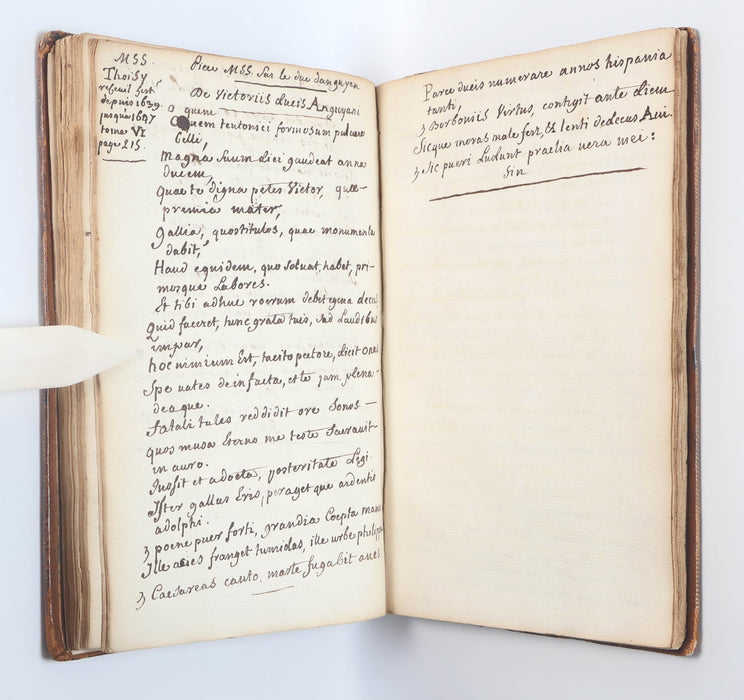 MSS.
Thoisy
recueil fait
depuis 1639.
jusqua 1647
tome VI
page 215.
Piece MSS. Sur le duc danguyen
De Victoriis Ducis Anguyani
O quem
Quem teutonici formosum pulvere
belli,
magna suum dici gaudeat anna
ducem,
Quae te digna petes Victor, quae
premia mater,
Gallia, quos titulos, quae monumenta
dabit,
Haud equidem, quo soluat, habet, pri-
mosque Labores.
Et tibi adhuc
Quid faceret, tunc grata tuis, sed Laudibus
impar,
hoc nimium Est, tacito pectore, dicit
Spe uates dein facta, et te jam plena
deaque.
fatali tales reddidit ore Sonos —
quos musa Eterno me teste Sacrauit
in auro.
Jussit et a docta, posteritate Legi
Ister gallus Erit, peraget que ardentis
adolphi.
3 poene puer forti, grandia Coepta manu
Ille acies franget tumidas, ille urbe philipp
3 Caesareas cauto marte fugabit aues
Parce ducis numerare annos hispania
tanti,
3 Borboniis Virtus, contigit ante diem
Sicque moras male fert, & lenti dedecus Aeui
3 Sic pueri Ludunt praelia vera mei:
fin